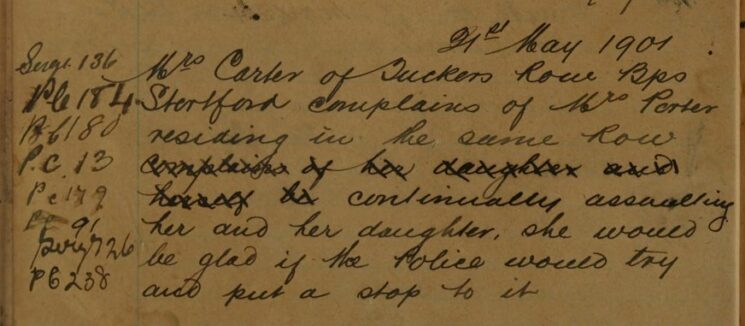 21st May 1901.
Sergt 136 Mrs Carter of Tuckers Row Bps
PC 184 Stortford complains of Mrs Porter
PC 180 residing in the same Row
P.C. 13 complains of her daughter and
Pc 179 herself be continually assaulting
PC 91 her and her daughter, she would
Sergt 26 be glad if the Police would try
PC 238 and put a stop to it